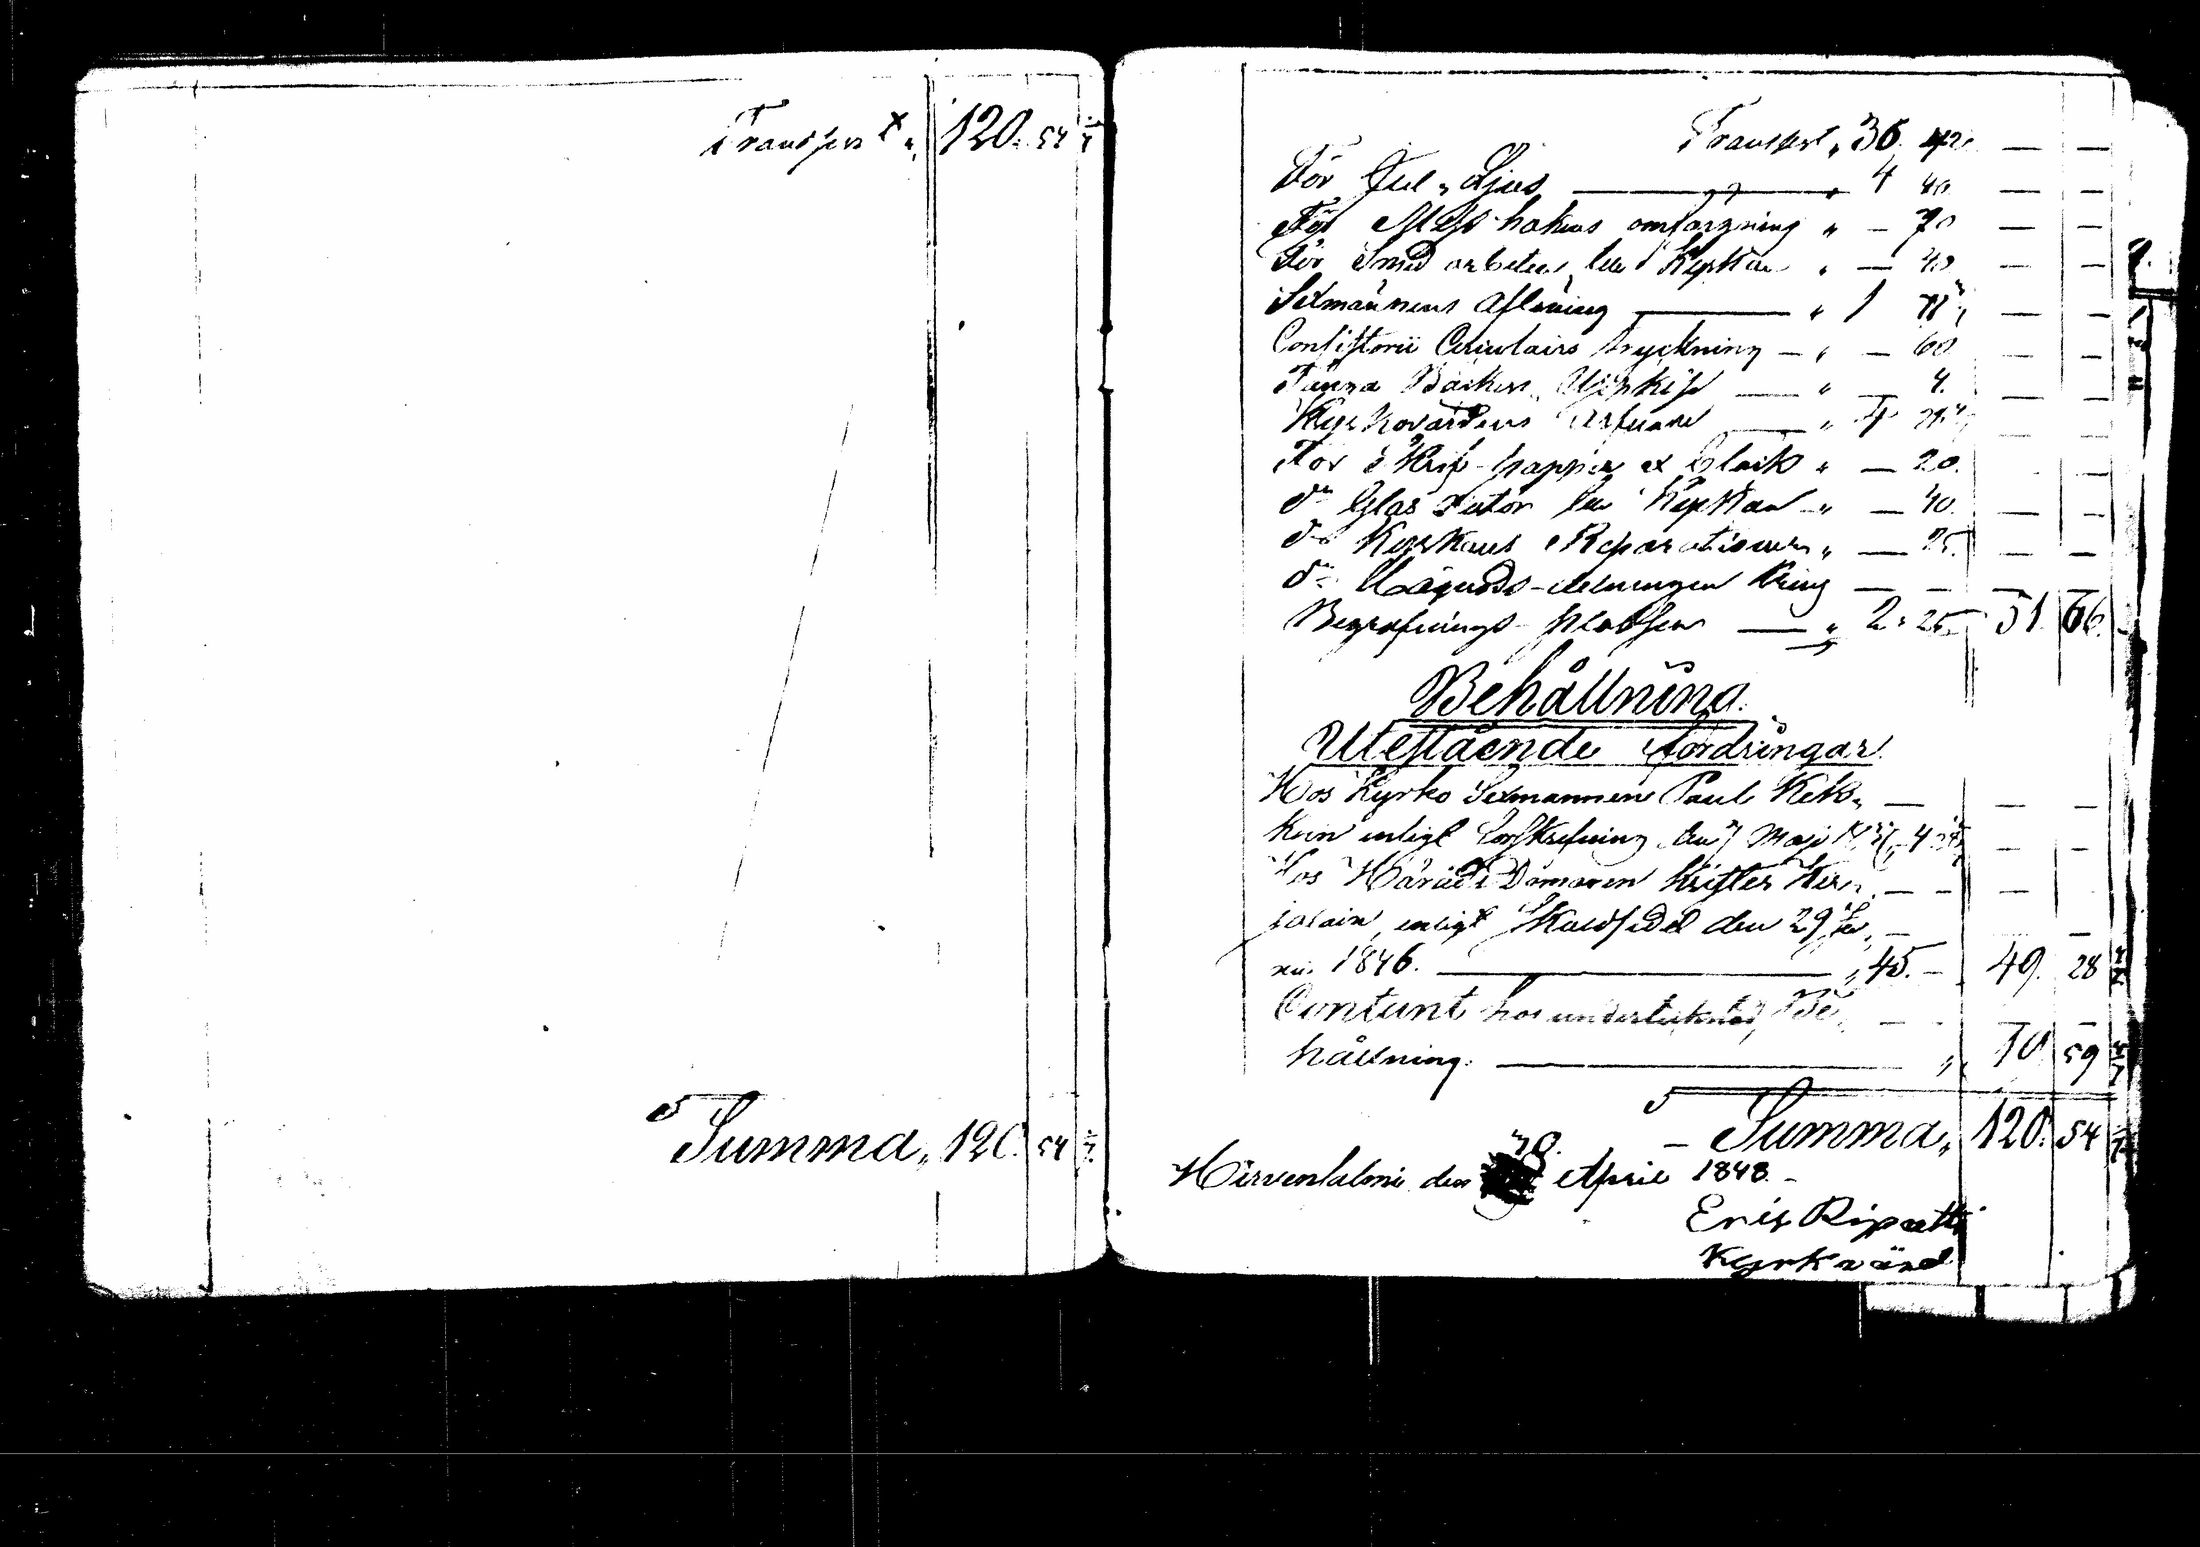 Transport „ 120. 54 2/7
Summa „ 120. 54 2/7
Transport „ 36. 42 — —
För Jul-Ljus — „ 4 40. — —
För Mess hakens omfärgning „ — 70 — —
För Smid arbeten till Kyrkan „ — 40 — —
Sexmannens Aflöning — „ 1 71 — —
Consistorii Circulairs tryckning — „ — 60 — —
— „ 4. — —
Kyrkovärdens — „ 4 — —
För Skrif-papper et bläck „ — 20. — —
d:o Glas rutor till Kyrkan „ — 40. — —
d:o Kyrkans Reparationer „ — 25. — —
d:o kring — — — —
Begrafnings-platsen — „ 2. 25 51. 66.
Behållning.
Utestående fordringar.
Hos Kyrko Sexmannen Paul Kek- — — —
koin enligt den 7 Maji „ 4 — —
Hos Härads Domaren Krister Hir- — — —
jalain, enligt Skuldsedel den 29 —
1846. — „ 45. — 49. 28 4/7
Contant hos undertecknad, Be- — — —
hållning. — „ 19 59 5/7
Summa „ 120. 54 2/7
Hirvensalmi den 30. April 1848. —
Eric Ripatti
Kyrkvärd